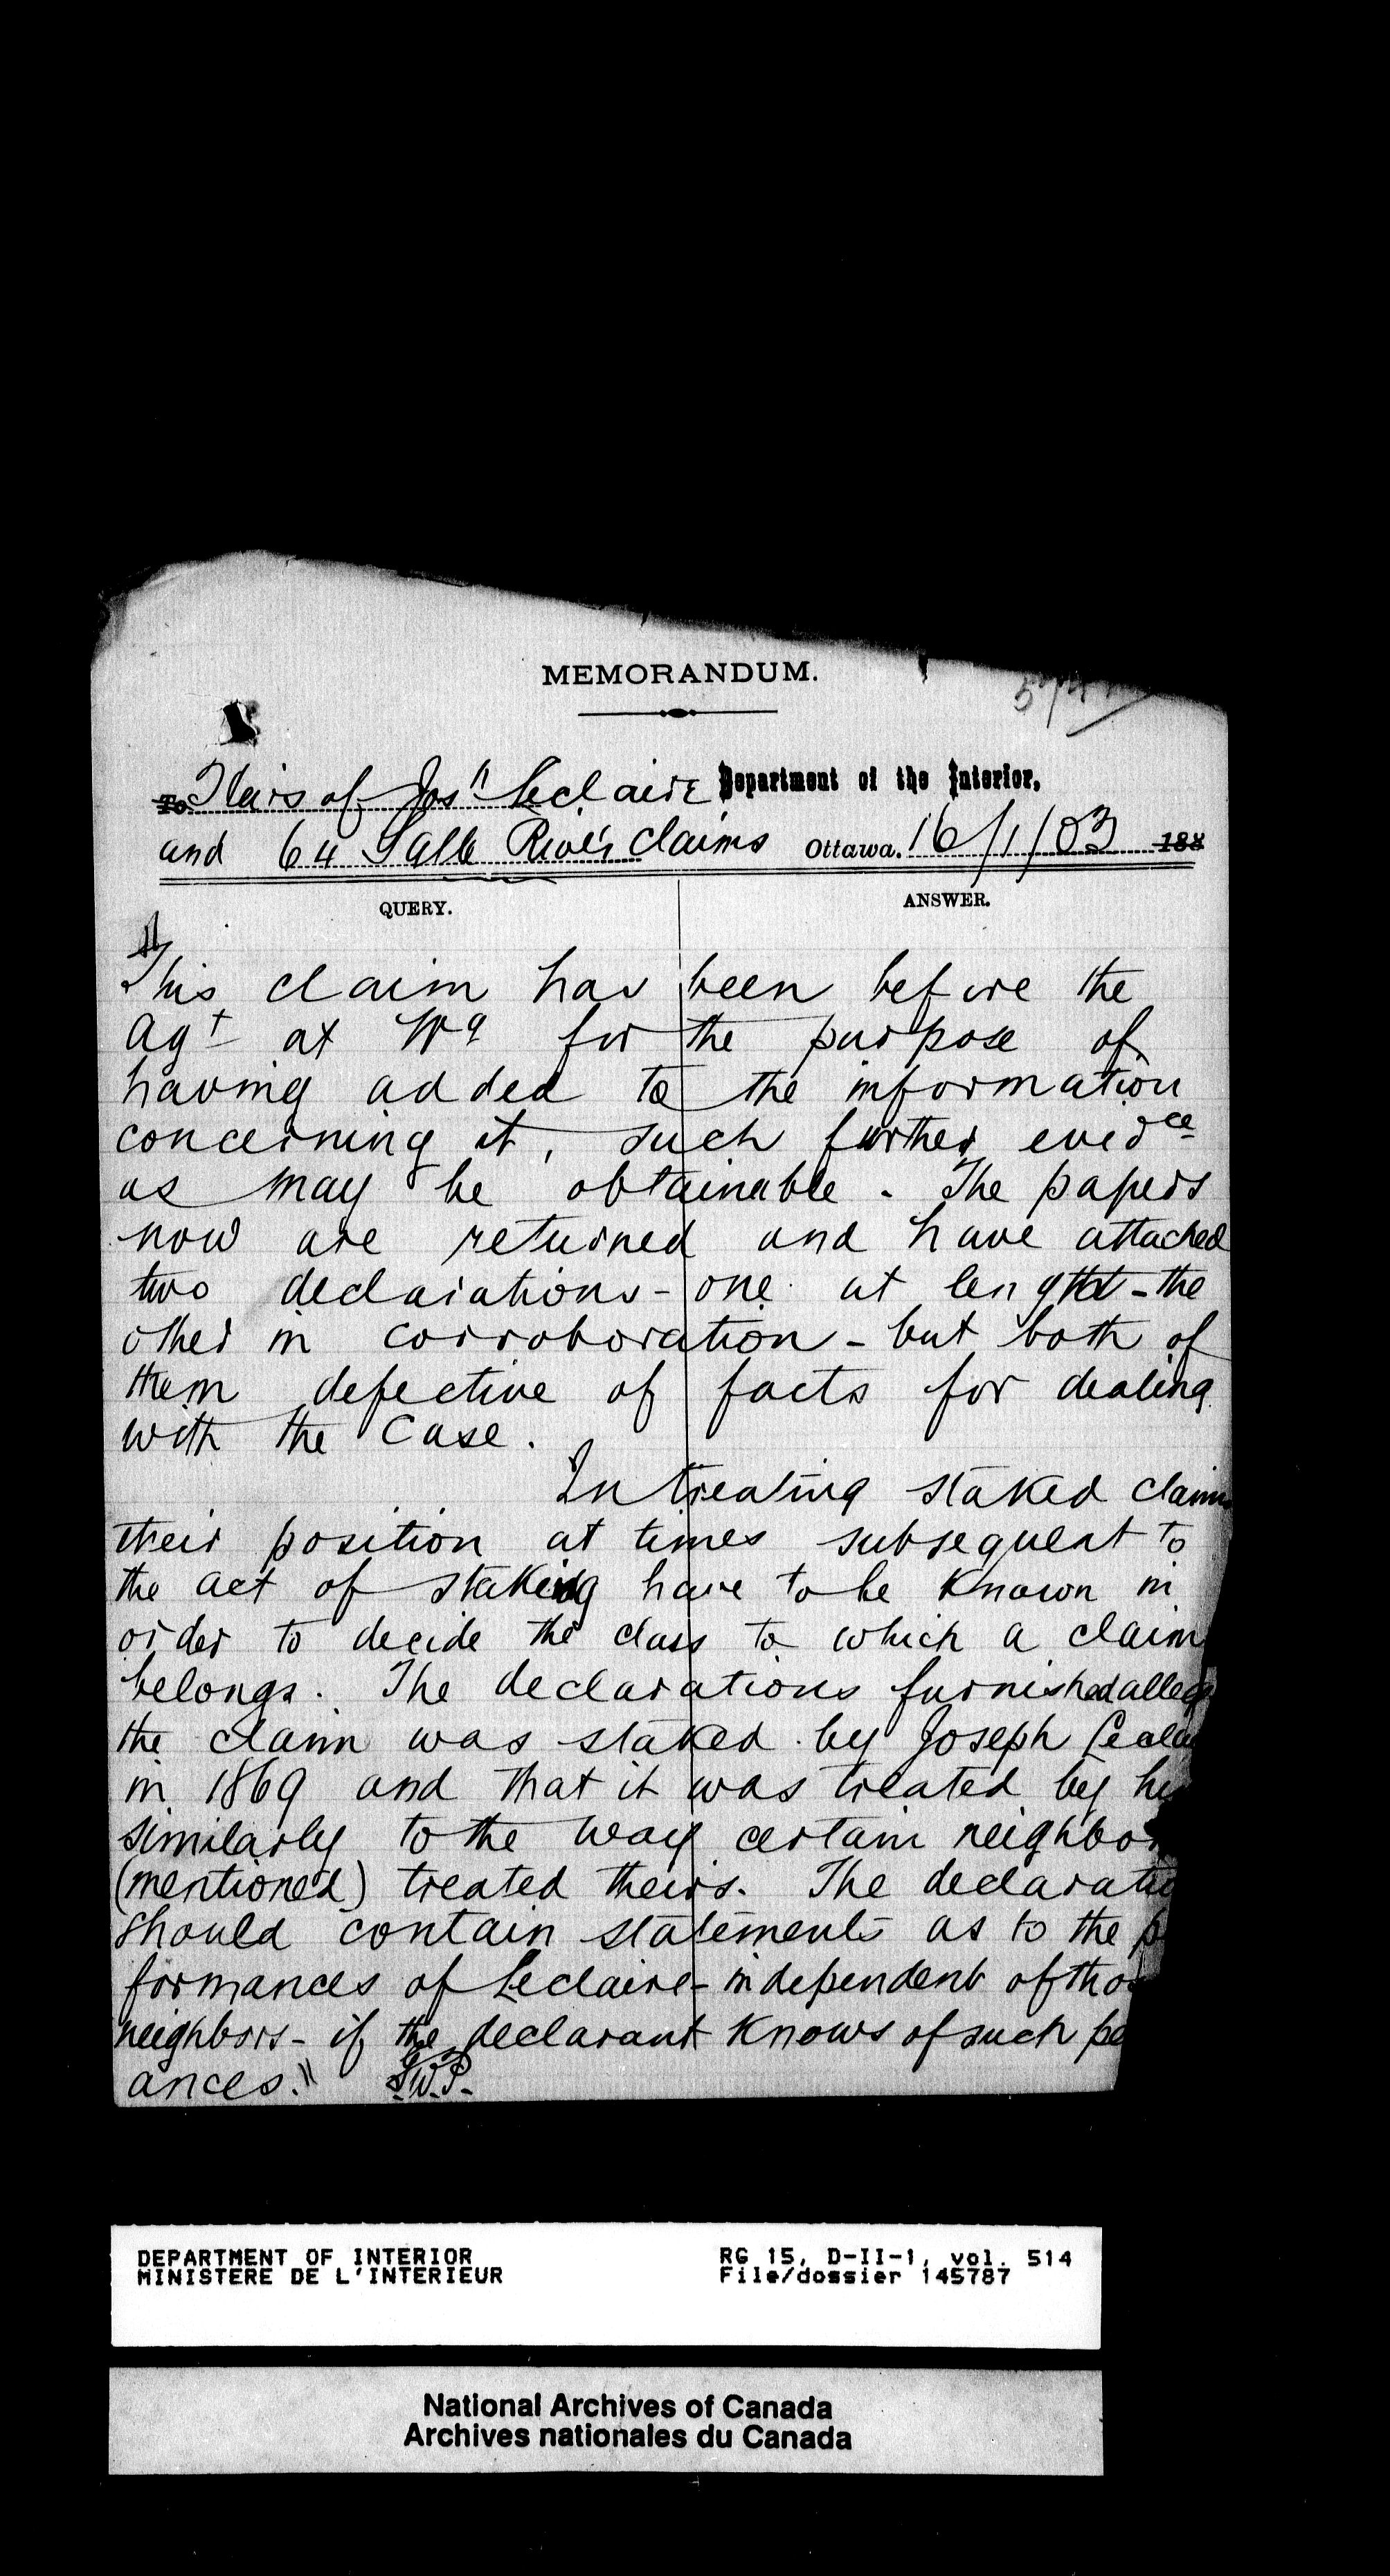 MEMORANDUM.
To Heirs of Josh Leclaire Department of the Interior,
and 64 Salle River claims Ottawa. 16/1/03 188
QUERY. ANSWER.
"This claim has been before the
Agt at Wg for the purpose of
having added to the information
concerning it, such further evidce
as may be obtainable. The papers
now are returned and have attached
two declarations - one at lenght - the
other in corroboration - but both of
them defective of facts for dealing
with the case.
In treating staked claims
their position at times subsequent to
the act of staking have to be known in
order to decide the class to which a claim
belongs. The declarations furnished alleg
the claim was staked by Joseph Lecla
in 1869 and that it was treated by hi
similarly to the way certain neighbor
(mentioned) treated theirs. The declaratio
should contain statements as to the p
formances of Leclaire - independent of tho
neighbors - if the declarant knows of such pe
ances." T.W.P.
DEPARTMENT OF INTERIOR RG 15, D-II-1, vol. 514
MINISTERE DE L'INTERIEUR File/dossier 145787
National Archives of Canada
Archives nationales du Canada